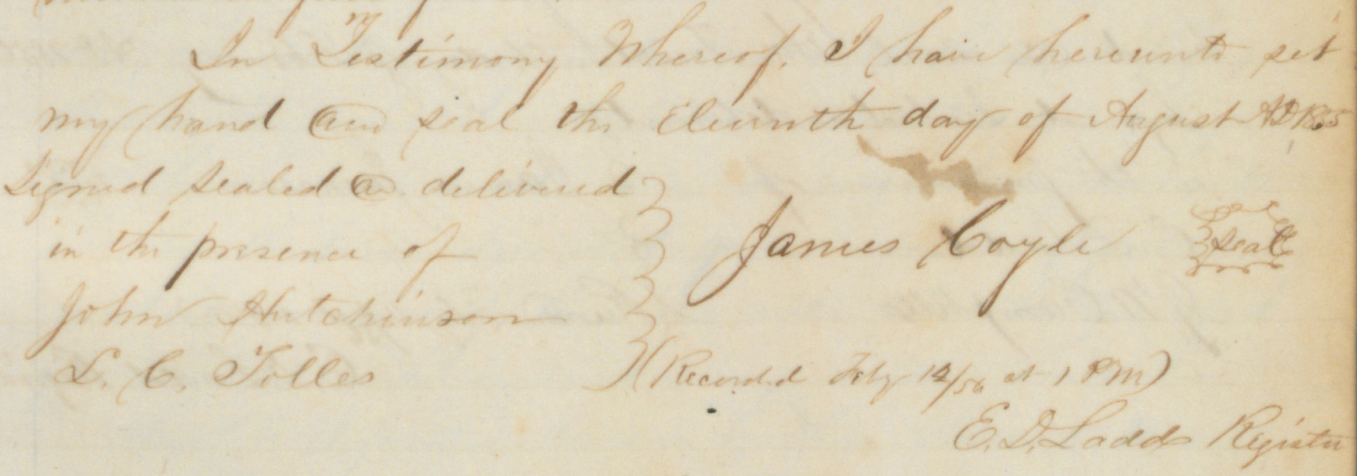 In Testimony Whereof, I have hereunto set
my hand and seal the Eleventh day of August AD 1855
Signed Sealed and delivered
in the presence of
James Coyle
Seal
John Hutchinson
L. C. Tolles
(Recorded Feby 12/56 at 1 PM)
E. D. Ladd Register